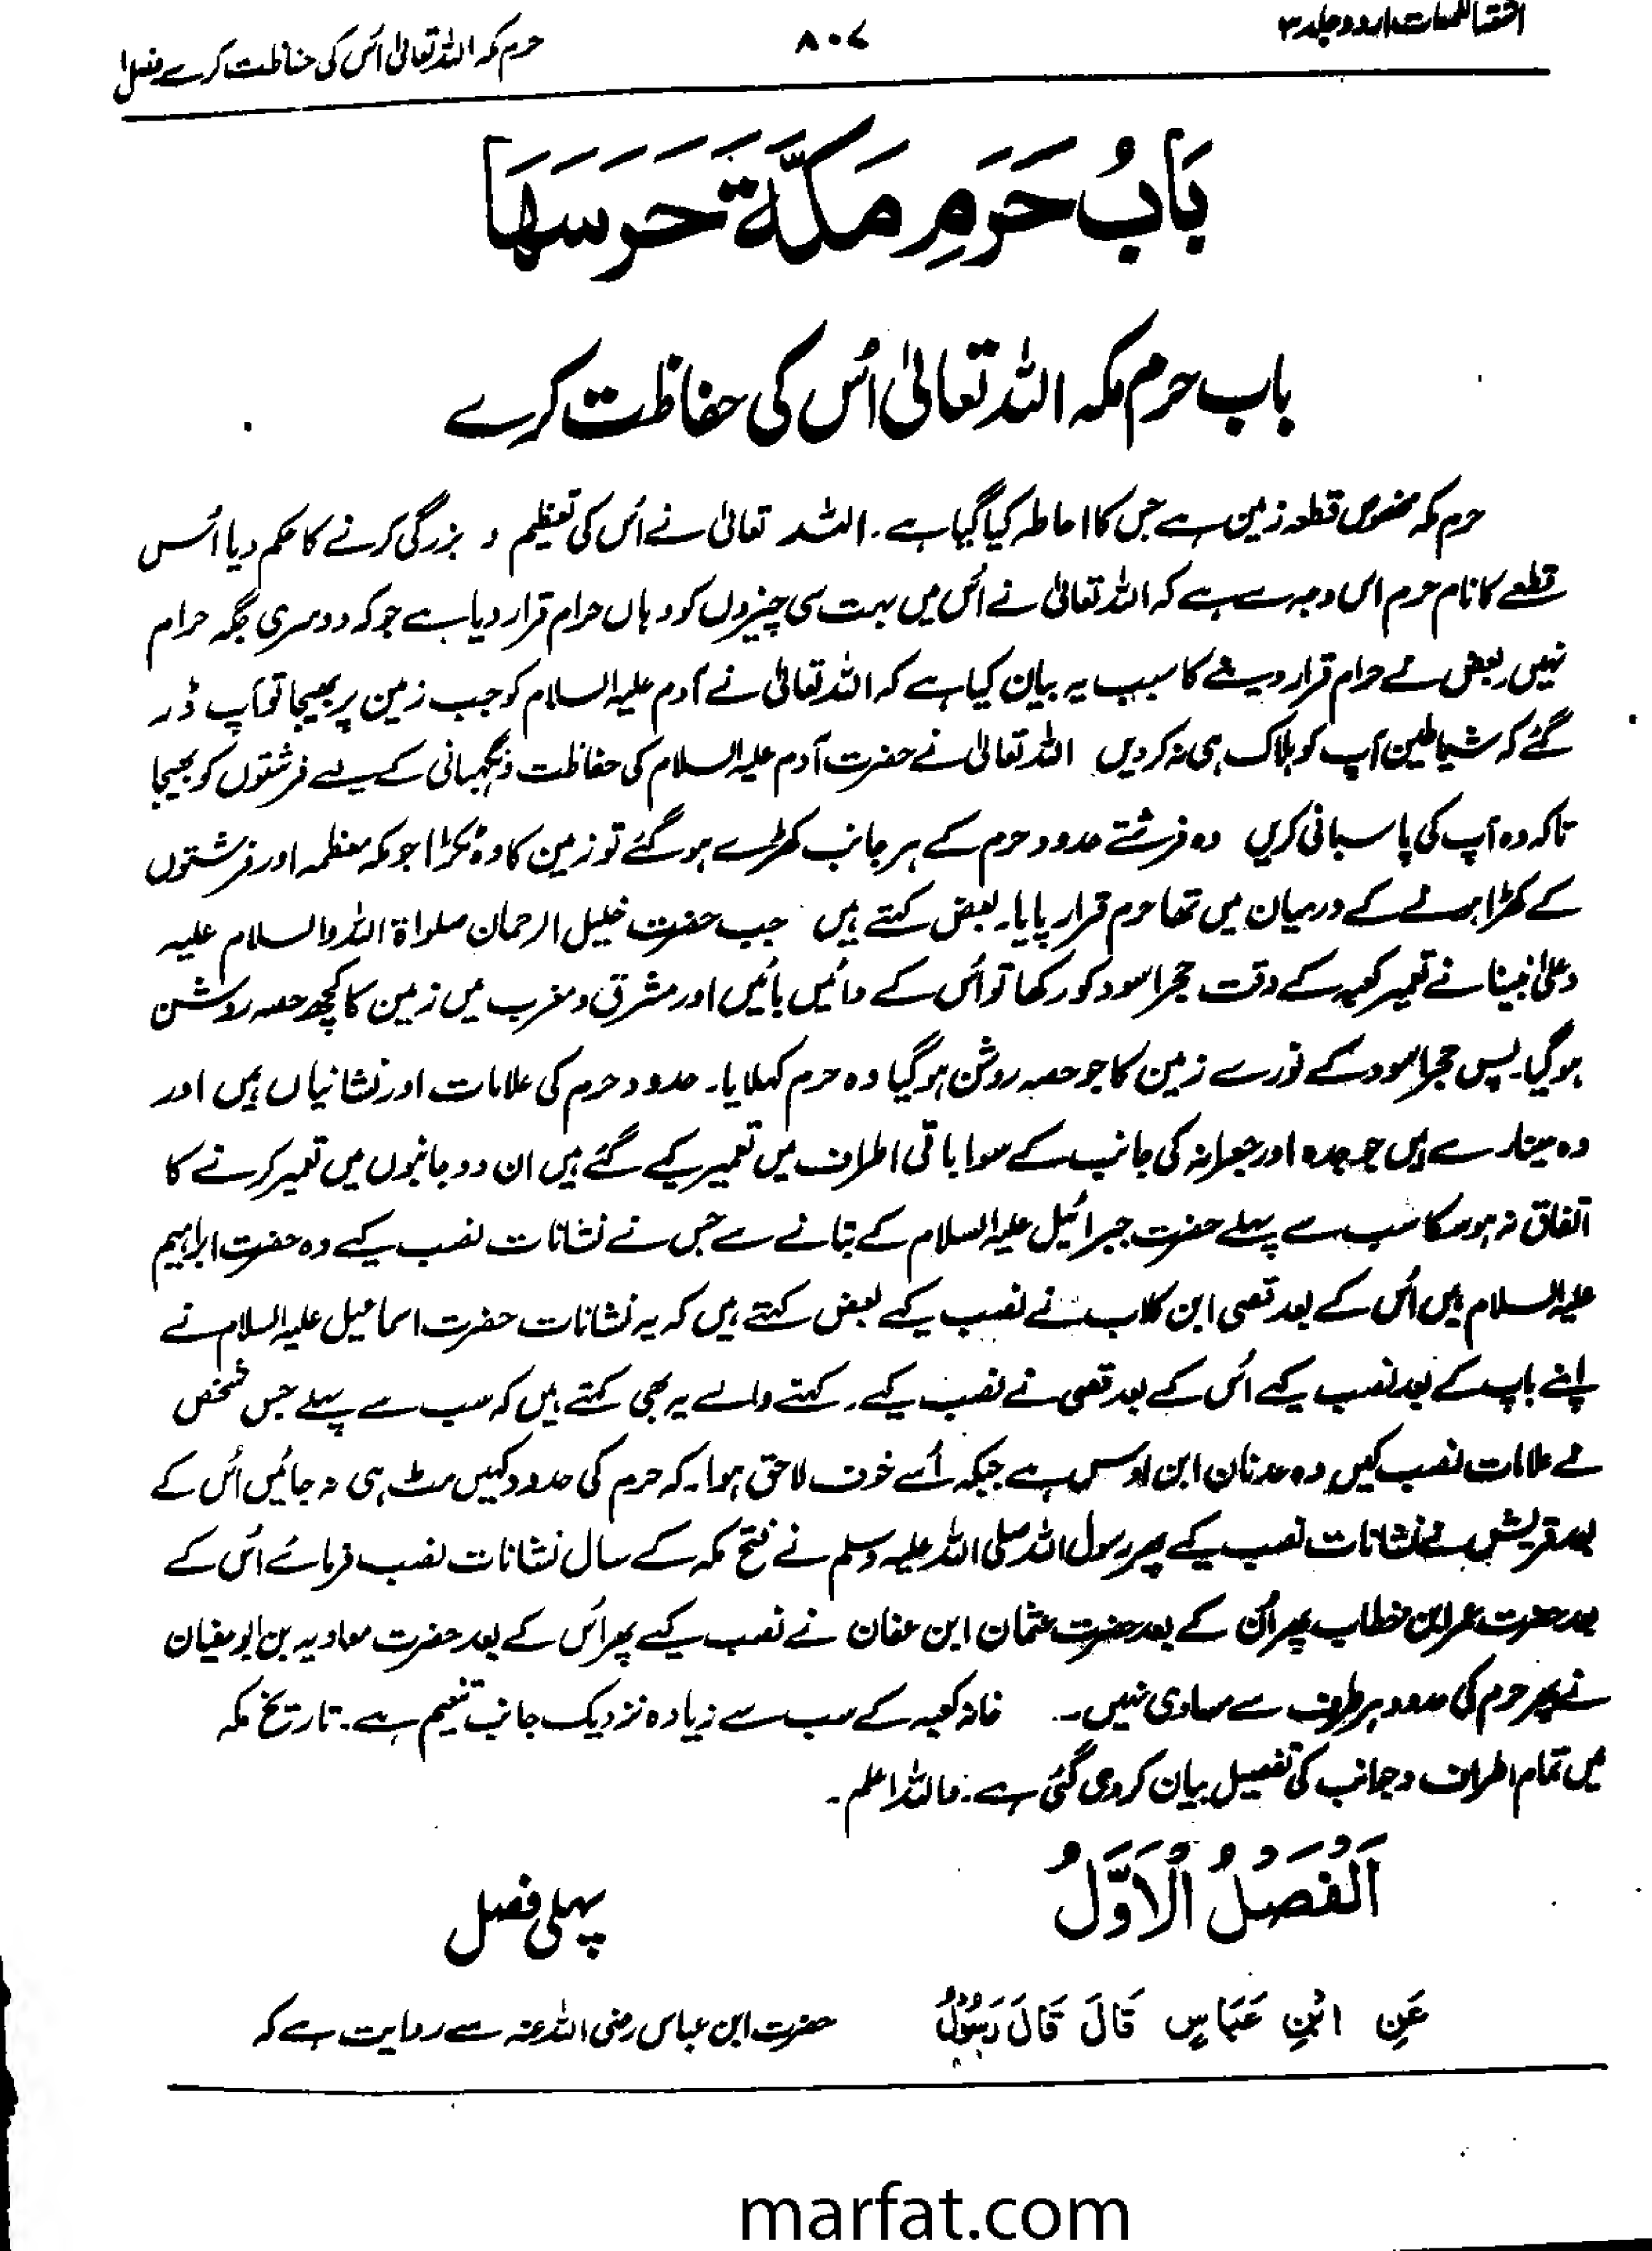 اشعۃ اللمعات اردو جلد ۳
۸۰۷
حرم مکہ اللہ تعالیٰ اُس کی حفاظت کرے فصل ۱
بَابُ حَرَمِ مَكَّةَ حَرَسَهَا
باب حرم مکہ اللہ تعالیٰ اُس کی حفاظت کرے
حرم مکہ مخصوص قطعہ زمین ہے جس کا احاطہ کیا گیا ہے۔ اللہ تعالیٰ نے اُس کی تعظیم و بزرگی کرنے کا حکم دیا اُس
قطعے کا نام حرم اس وجہ سے ہے کہ اللہ تعالیٰ نے اُس میں بہت سی چیزوں کو وہاں حرام قرار دیا ہے جو کہ دوسری جگہ حرام
نہیں بعض نے حرام قرار دینے کا سبب یہ بیان کیا ہے کہ اللہ تعالیٰ نے آدم علیہ السلام کو جب زمین پر بھیجا تو آپ ڈر
گئے کہ شیاطین آپ کو ہلاک ہی نہ کر دیں اللہ تعالیٰ نے حضرت آدم علیہ السلام کی حفاظت و نگہبانی کے لیے فرشتوں کو بھیجا
تاکہ وہ آپ کی پاسبانی کریں وہ فرشتے حدود حرم کے ہر جانب کھڑے ہو گئے تو زمین کا وہ ٹکڑا جو مکہ معظمہ اور فرشتوں
کے کھڑا ہونے کے درمیان میں تھا حرم قرار پایا۔ بعض کہتے ہیں جب حضرت خلیل الرحمان صلواۃ اللہ والسلام علیہ
وعلیٰ نبینا نے تعمیر کعبہ کے وقت حجر اسود کو رکھا تو اُس کے دائیں بائیں اور مشرق و مغرب میں زمین کا کچھ حصہ روشن
ہو گیا۔ پس حجر اسود کے نور سے زمین کا جو حصہ روشن ہو گیا وہ حرم کہلایا۔ حدود حرم کی علامات اور نشانیاں ہیں اور
وہ مینار سے ہیں جو جدہ اور جعرانہ کی جانب کے سوا باقی اطراف میں تعمیر کیے گئے ہیں ان دو جانبوں میں تعمیر کرنے کا
اتفاق نہ ہو سکا سب سے پہلے حضرت جبرائیل علیہ السلام کے بتانے سے جس نے نشانات نصب کیے وہ حضرت ابراہیم
علیہ السلام ہیں اُس کے بعد قصی ابن کلاب نے نصب کیے بعض کہتے ہیں کہ یہ نشانات حضرت اسماعیل علیہ السلام نے
اپنے باپ کے بعد نصب کیے اُس کے بعد قصی نے نصب کیے۔ کہنے والے یہ بھی کہتے ہیں کہ سب سے پہلے جس شخص
نے علامات نصب کیں وہ عدنان ابن اوس ہے جبکہ اُسے خوف لاحق ہوا۔ کہ حرم کی حدود کہیں مٹ ہی نہ جائیں اُس کے
بعد قریش نے نشانات نصب کیے پھر رسول اللہ صلی اللہ علیہ وسلم نے فتح مکہ کے سال نشانات نصب فرمائے اُس کے
بعد حضرت عمر ابن خطاب پھر اُن کے بعد حضرت عثمان ابن عفان نے نصب کیے پھر اُس کے بعد حضرت معاویہ بن ابوسفیان
نے پھر حرم کی حدود ہر طرف سے مساوی نہیں۔ خانہ کعبہ کے سب سے زیادہ نزدیک جانب تنعیم ہے۔ تاریخ مکہ
میں تمام اطراف و جوانب کی تفصیل بیان کر دی گئی ہے۔ واللہ اعلم۔
اَلْفَصْلُ الْاَوَّلُ
پہلی فصل
عَنِ ابْنِ عَبَّاسٍ قَالَ قَالَ رَسُوْلُ
حضرت ابن عباس رضی اللہ عنہ سے روایت ہے کہ
marfat.com